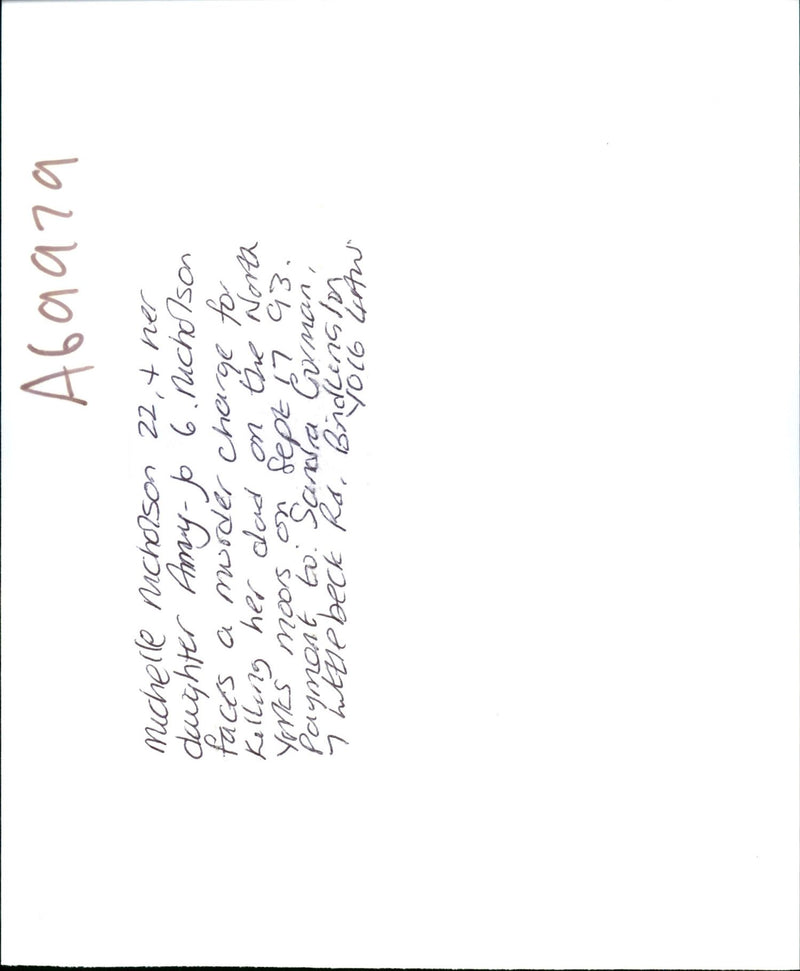 A69979
Michelle Nicholson 22, + her
daughter Amy-Jo 6. Nicholson
faces a murder charge for
killing her dad on the North
Yorks moors on Sept 17 93.
Payment to. Sandra Gorman,
7 Littlebeck Rd. Bridlington
YO16